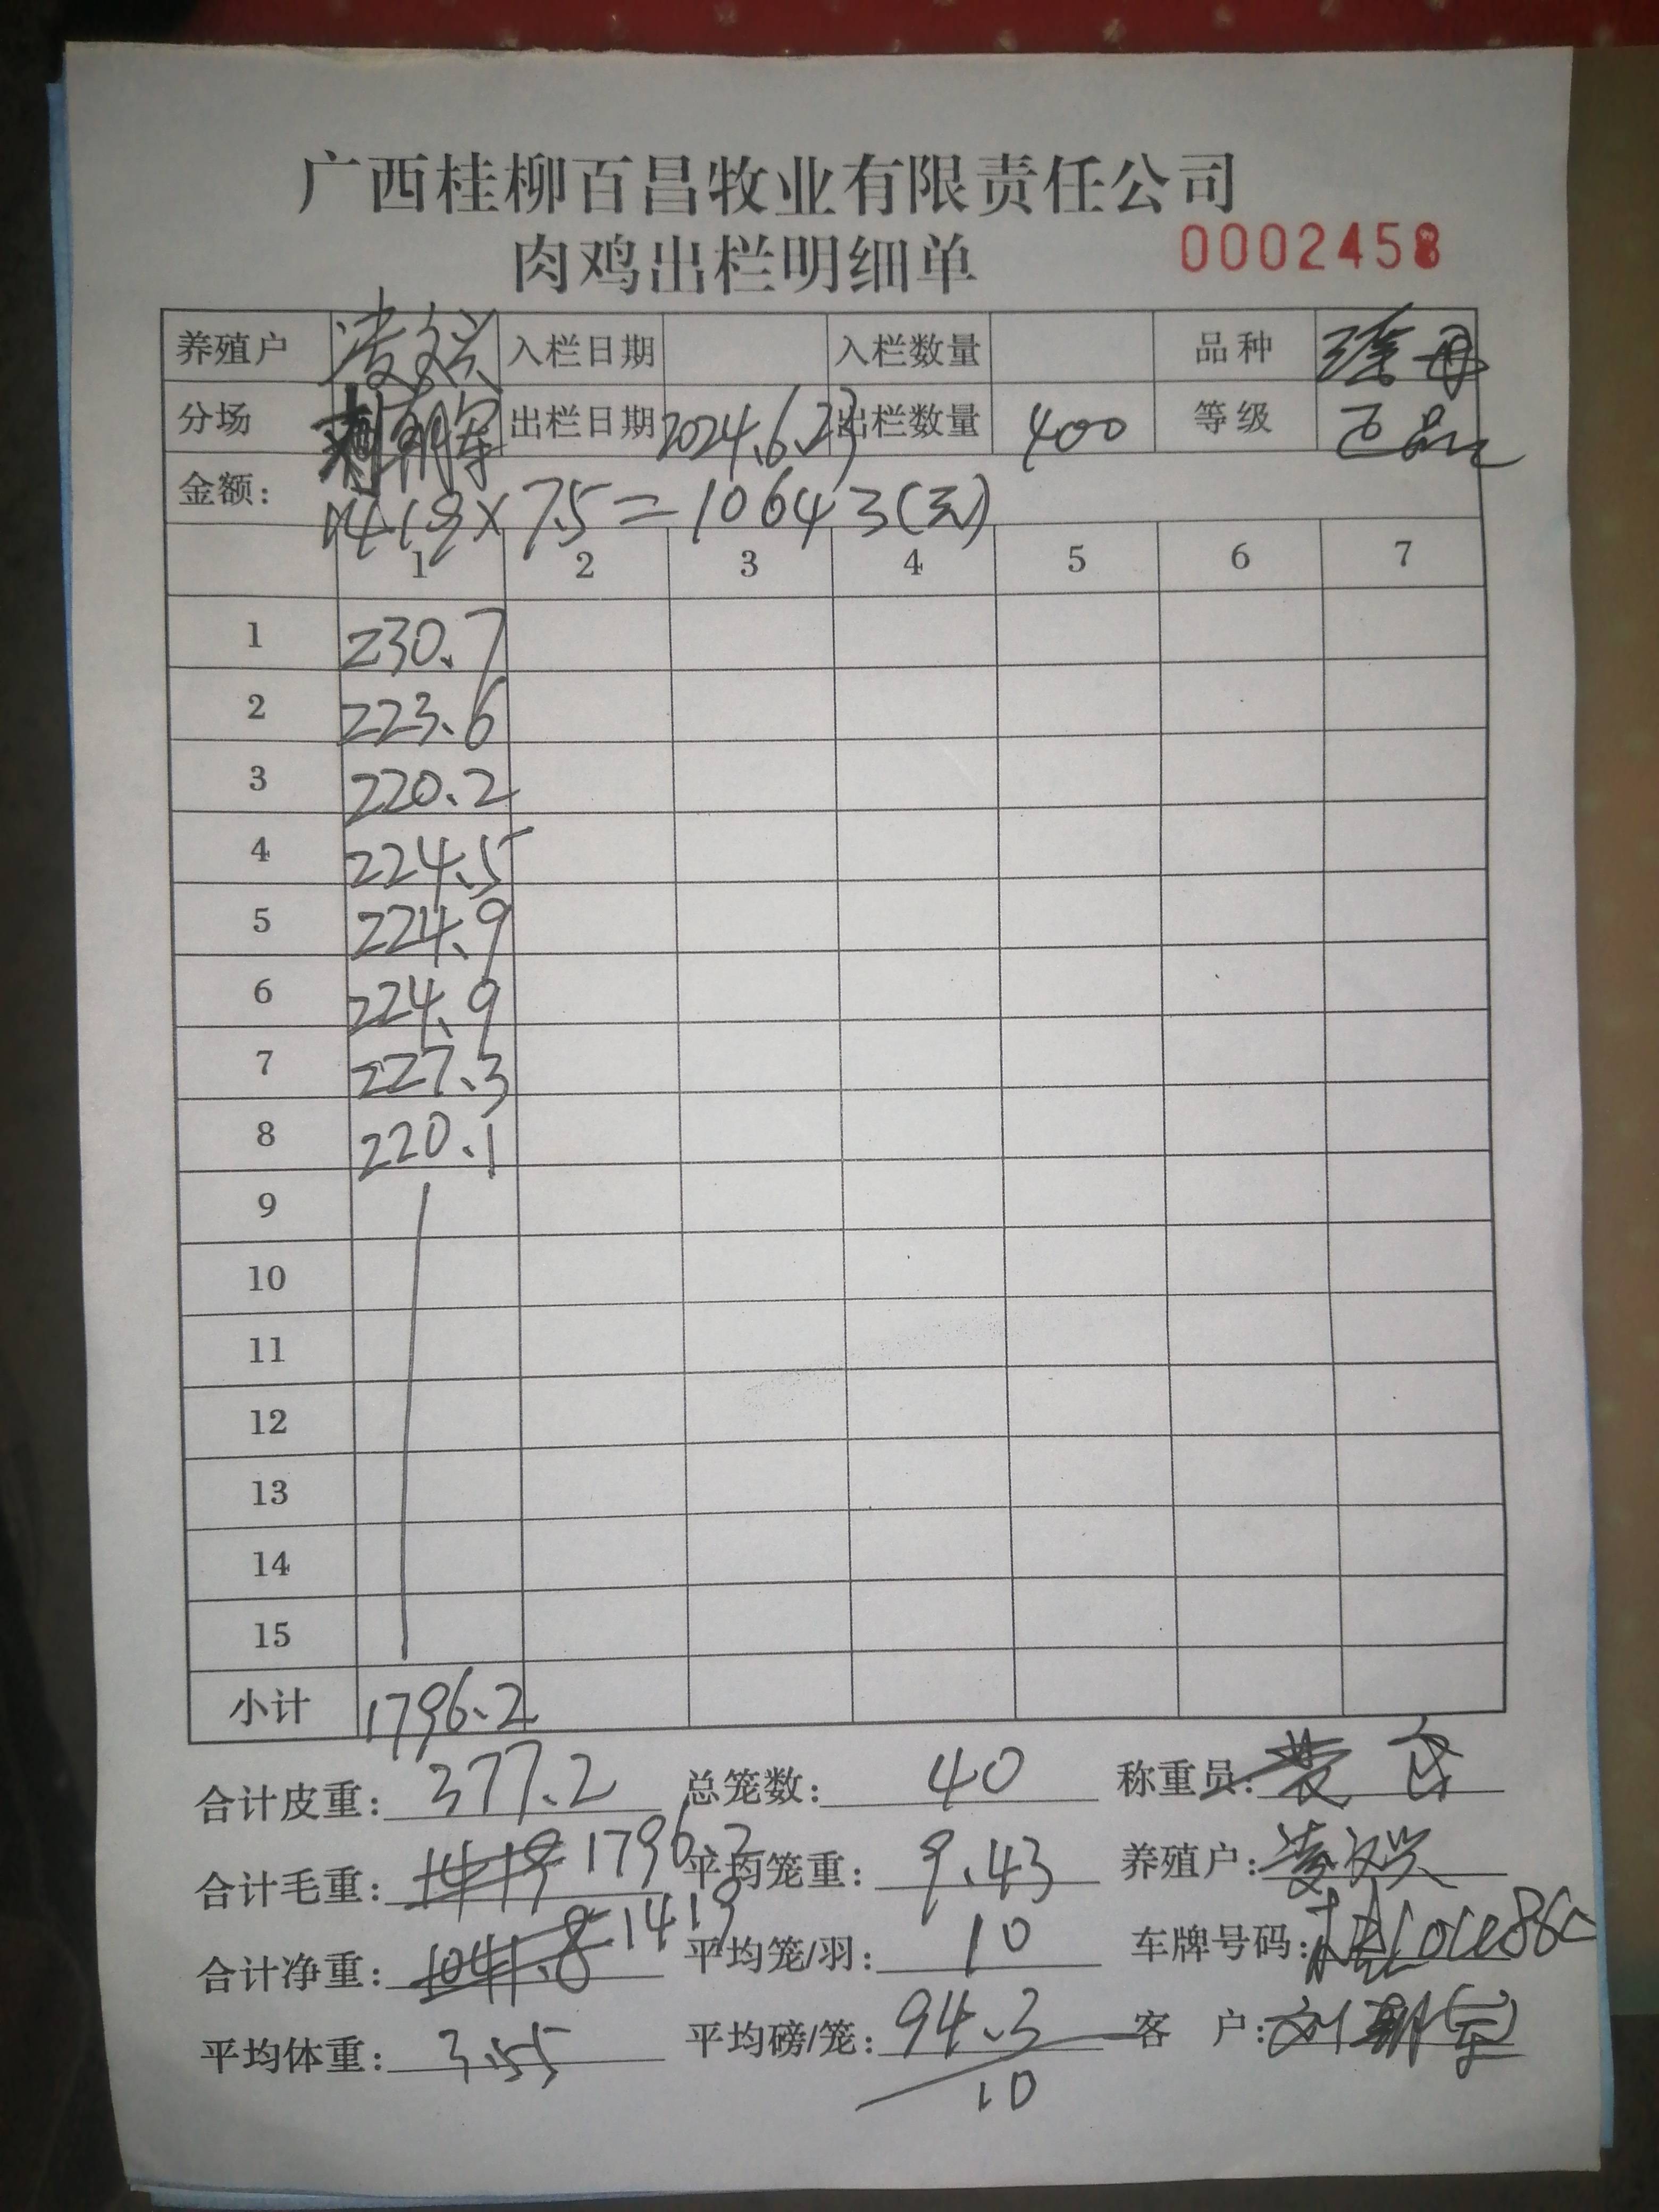 广西桂柳百昌牧业有限责任公司
肉鸡出栏明细单 0002458
养殖户 凌文兴 入栏日期 入栏数量 品种
分场 出栏日期 2024.6.23 出栏数量 400 等级 正品
金额: 1419×7.5=10643(元)
1 2 3 4 5 6 7
1 230.7
2 223.6
3 220.2
4 224.5
5 224.9
6 224.9
7 227.3
8 220.1
9
10
11
12
13
14
15
小计 1796.2
合计皮重: 377.2 总笼数: 40 称重员:
合计毛重: 1419 1796.2 平均笼重: 9.43 养殖户: 凌文兴
合计净重: 1041.8 1419 平均笼/羽: 10 车牌号码:
平均体重: 3.55 平均磅/笼: 94.3 客 户: 刘
10